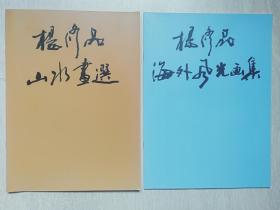 楊修品
山水畫選
楊修品
海外风光画集